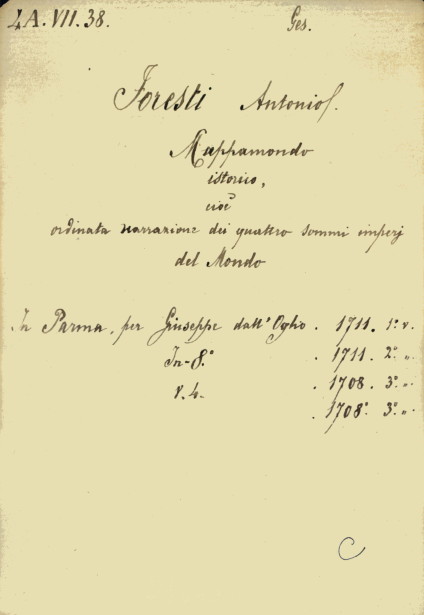 4A. VII. 38. Ges.
Foresti Antonio S.
Mappamondo
istorico,
cioè
ordinata narrazione dei quattro sommi imperj
del Mondo
In Parma, per Giuseppe dall'Oglio. 1711. 1º v.
In-8.º . 1711. 2º „.
v. 4. . 1708. 3º „.
. 1708º. 3º „.
C